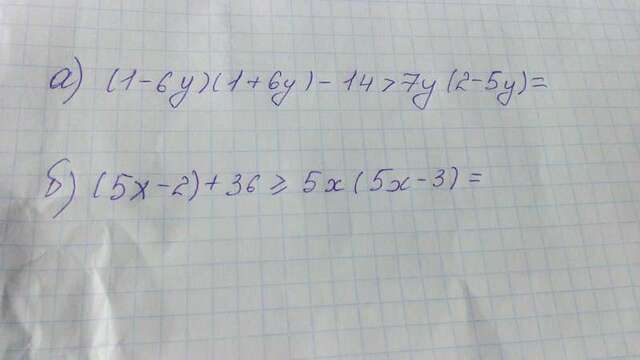 а) (1-6y)(1+6y)-14>7y(2-5y)=
б) (5x-2)+36≥5x(5x-3)=